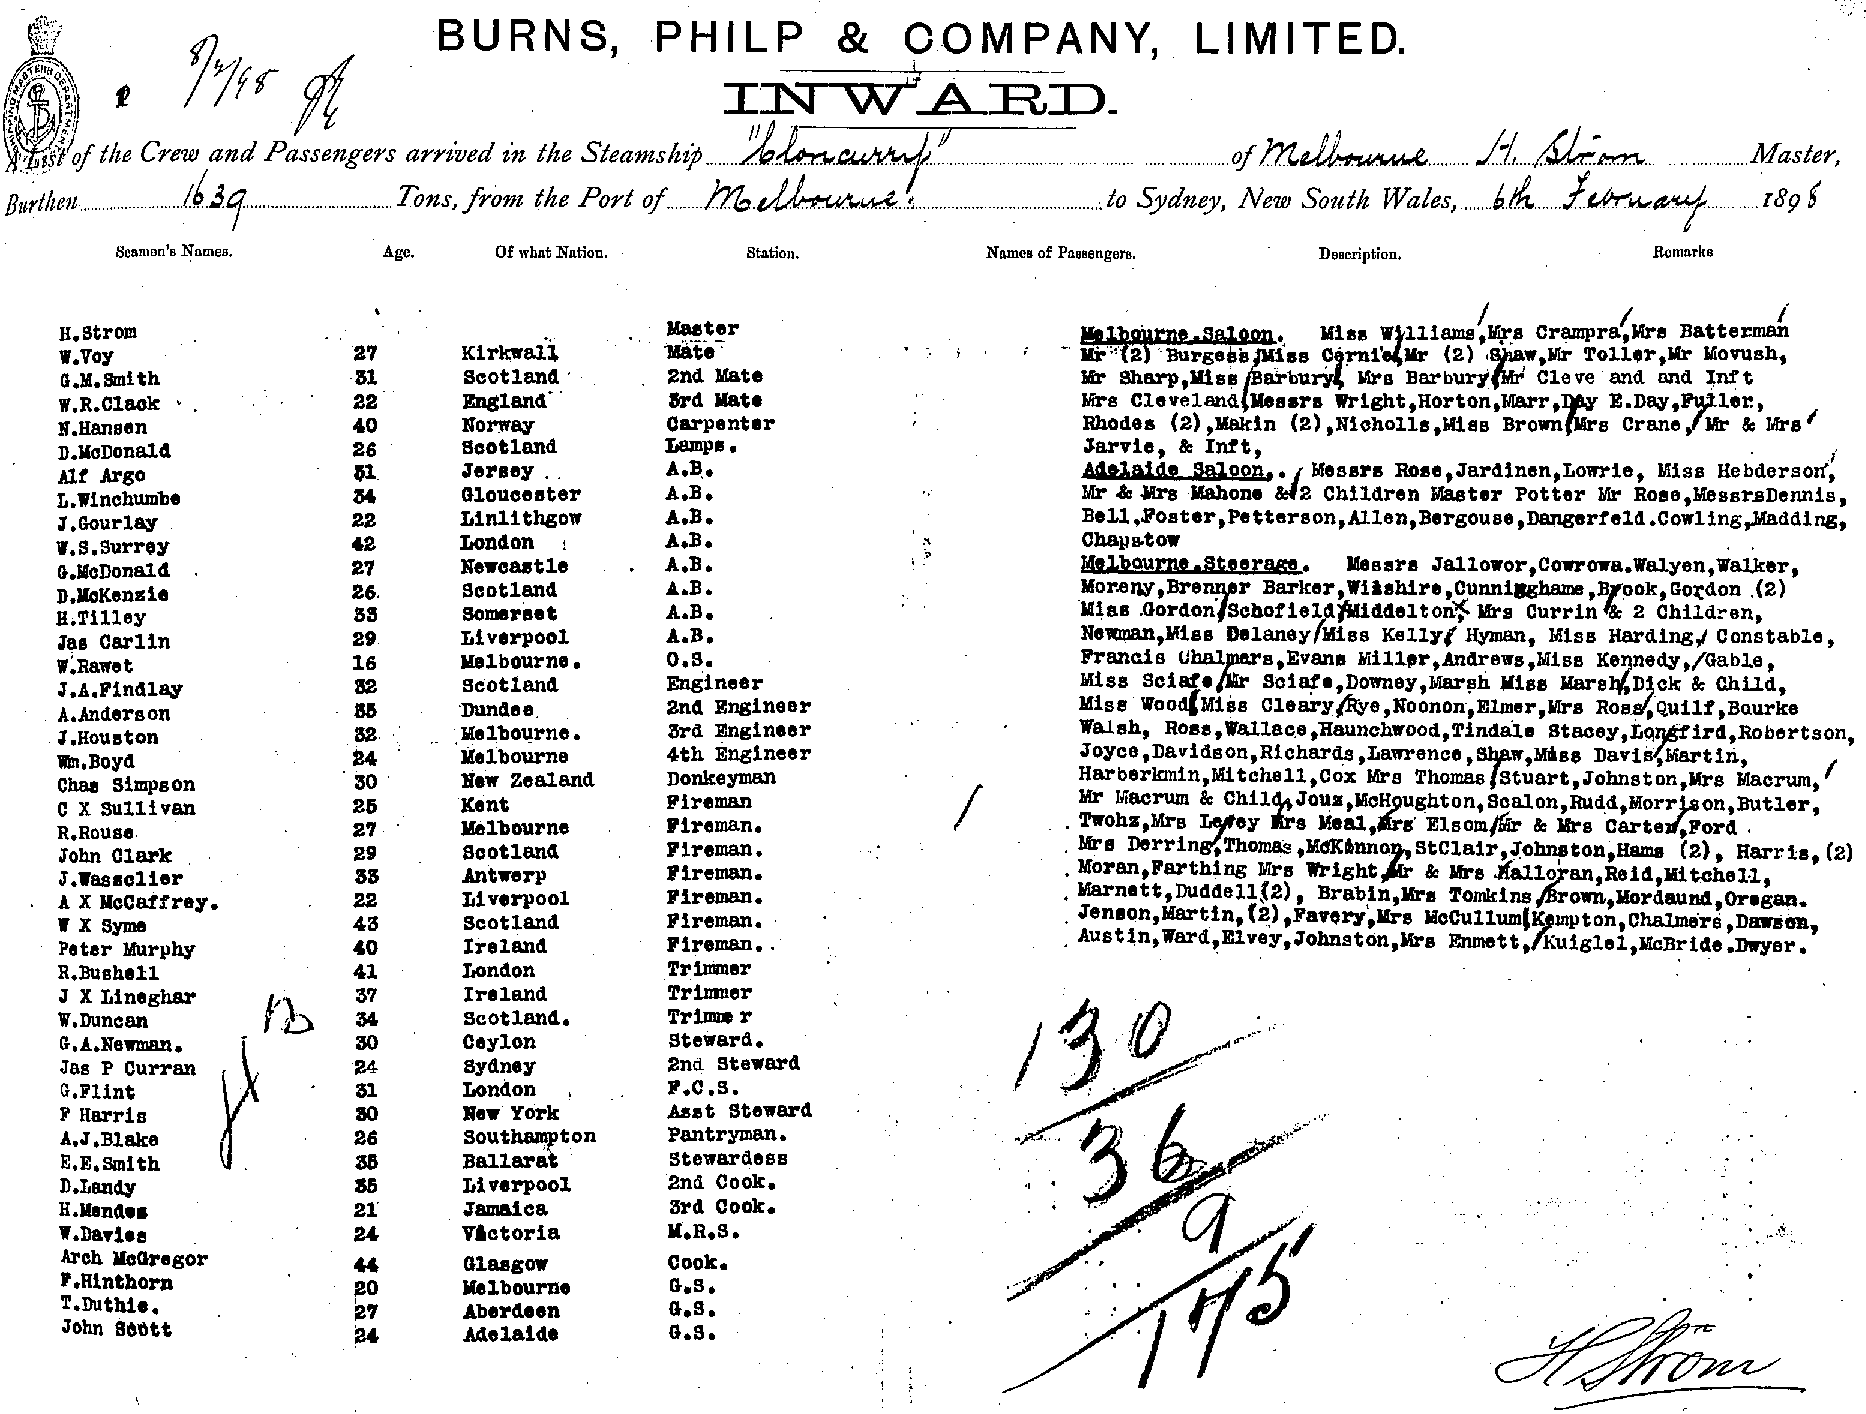 BURNS, PHILP & COMPANY, LIMITED.
INWARD.
8/2/98
A List of the Crew and Passengers arrived in the Steamship "Cloncurry" of Melbourne H. Ström Master,
Burthen 1639 Tons, from the Port of Melbourne. to Sydney, New South Wales, 6th February 1898
Seamen's Names. Age. Of what Nation. Station. Names of Passengers. Description. Remarks
H.Strom Master
W.Voy 27 Kirkwall Mate
G.M.Smith 31 Scotland 2nd Mate
W.R.Clack 22 England 3rd Mate
N.Hansen 40 Norway Carpenter
D.McDonald 26 Scotland Lamps.
Alf Argo 31 Jersey A.B.
L.Winchumbe 34 Gloucester A.B.
J.Gourlay 22 Linlithgow A.B.
W.S.Surrey 42 London A.B.
G.McDonald 27 Newcastle A.B.
D.McKenzie 26 Scotland A.B.
H.Tilley 33 Somerset A.B.
Jas Carlin 29 Liverpool A.B.
W.Rawet 16 Melbourne. O.S.
J.A.Findlay 32 Scotland Engineer
A.Anderson 35 Dundee 2nd Engineer
J.Houston 32 Melbourne. 3rd Engineer
Wm.Boyd 24 Melbourne 4th Engineer
Chas Simpson 30 New Zealand Donkeyman
C X Sullivan 25 Kent Fireman
R.Rouse 27 Melbourne Fireman.
John Clark 29 Scotland Fireman.
J.Wassclier 33 Antwerp Fireman.
A X McCaffrey. 22 Liverpool Fireman.
W X Syme 43 Scotland Fireman.
Peter Murphy 40 Ireland Fireman.
R.Bushell 41 London Trimmer
J X Lineghar 37 Ireland Trimmer
W.Duncan 34 Scotland. Trimmer
G.A.Newman. 30 Ceylon Steward.
Jas P Curran 24 Sydney 2nd Steward
G.Flint 31 London F.C.S.
F Harris 30 New York Asst Steward
A.J.Blake 26 Southampton Pantryman.
E.E.Smith 35 Ballarat Stewardess
D.Landy 35 Liverpool 2nd Cook.
H.Mendes 21 Jamaica 3rd Cook.
W.Davies 24 Victoria M.R.S.
Arch McGregor 44 Glasgow Cook.
F.Hinthorn 20 Melbourne G.S.
T.Duthie. 27 Aberdeen G.S.
John Scott 24 Adelaide G.S.
Melbourne.Saloon. Miss Williams,Mrs Crampra,Mrs Batterman
Mr (2) Burgess,Miss Cernie,Mr (2) Shaw,Mr Toller,Mr Movush,
Mr Sharp,Miss Barbury, Mrs Barbury Mr Cleve and and Inft
Mrs Cleveland,Messrs Wright,Horton,Marr,Day E.Day,Fuller,
Rhodes (2),Makin (2),Nicholls,Miss Brown,Mrs Crane, Mr & Mrs
Jarvie, & Inft,
Adelaide Saloon,. Messrs Rose,Jardinen,Lowrie, Miss Hebderson,
Mr & Mrs Mahone & 2 Children Master Potter Mr Rose,MessrsDennis,
Bell,Foster,Petterson,Allen,Bergouse,Dangerfeld.Cowling,Madding,
Chapstow
Melbourne.Steerage. Messrs Jallowor,Cowrowa.Walyen,Walker,
Moreny,Brenner Barker,Wilshire,Cunninghame,Brook,Gordon (2)
Miss Gordon,Schofield,Middelton, Mrs Currin & 2 Children,
Newman,Miss Delaney,Miss Kelly, Hyman, Miss Harding, Constable,
Francis Chalmers,Evans Miller,Andrews,Miss Kennedy, Gable,
Miss Sciafe,Mr Sciafe,Downey,Marsh Miss Marsh,Dick & Child,
Miss Wood,Miss Cleary,Rye,Noonon,Elmer,Mrs Ross,Quilf,Bourke
Walsh, Ross,Wallace,Haunchwood,Tindale Stacey,Longfird,Robertson,
Joyce,Davidson,Richards,Lawrence,Shaw,Miss Davis,Martin,
Harberkmin,Mitchell,Cox Mrs Thomas,Stuart,Johnston,Mrs Macrum,
Mr Macrum & Child,Joux,McHoughton,Scalon,Rudd,Morrison,Butler,
Twohz,Mrs Levey Mrs Meal,Mrs Elsom,Mr & Mrs Carter,Ford
Mrs Derring,Thomas,McKinnon,StClair,Johnston,Hams (2), Harris,(2)
Moran,Farthing Mrs Wright,Mr & Mrs Halloran,Reid,Mitchell,
Marnett,Duddell(2), Brabin,Mrs Tomkins,Brown,Mordaund,Oregan.
Jenson,Martin,(2),Favery,Mrs McCullum,Kempton,Chalmers,Dawson,
Austin,Ward,Elvey,Johnston,Mrs Enmett, Kuiglel,McBride.Dwyer.
130
36
9
175
H Ström